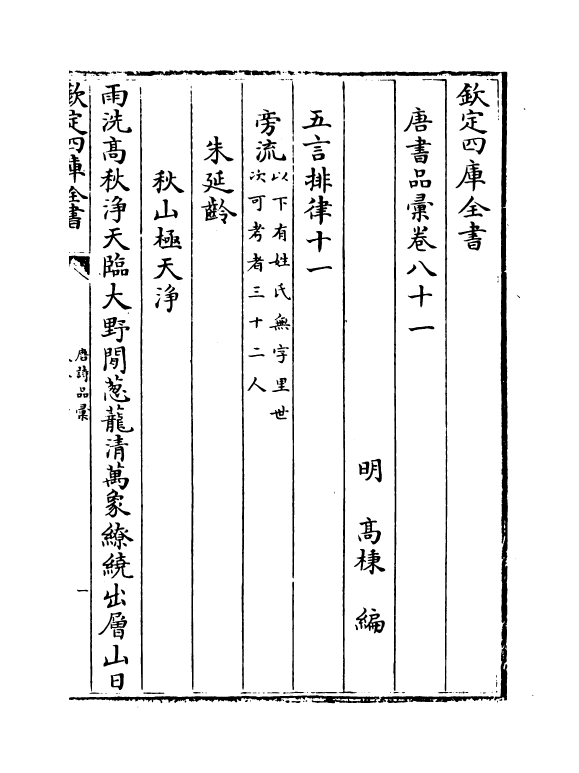 欽定四庫全書
唐書品彙卷八十一
明 髙棅 編
五言排律十一
旁流以下有姓氏無字里世
次可考者三十二人
朱延齡
秋山極天浄
雨洗髙秋浄天臨大野閒葱蘢清萬象繚繞出層山日
欽定四庫全書
唐詩品彙
一